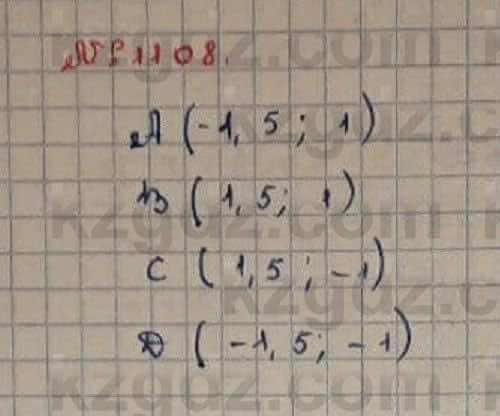 № 1108.
A (-1,5; 1)
B (1,5; 1)
C (1,5; -1)
D (-1,5; -1)
kzgdz.com